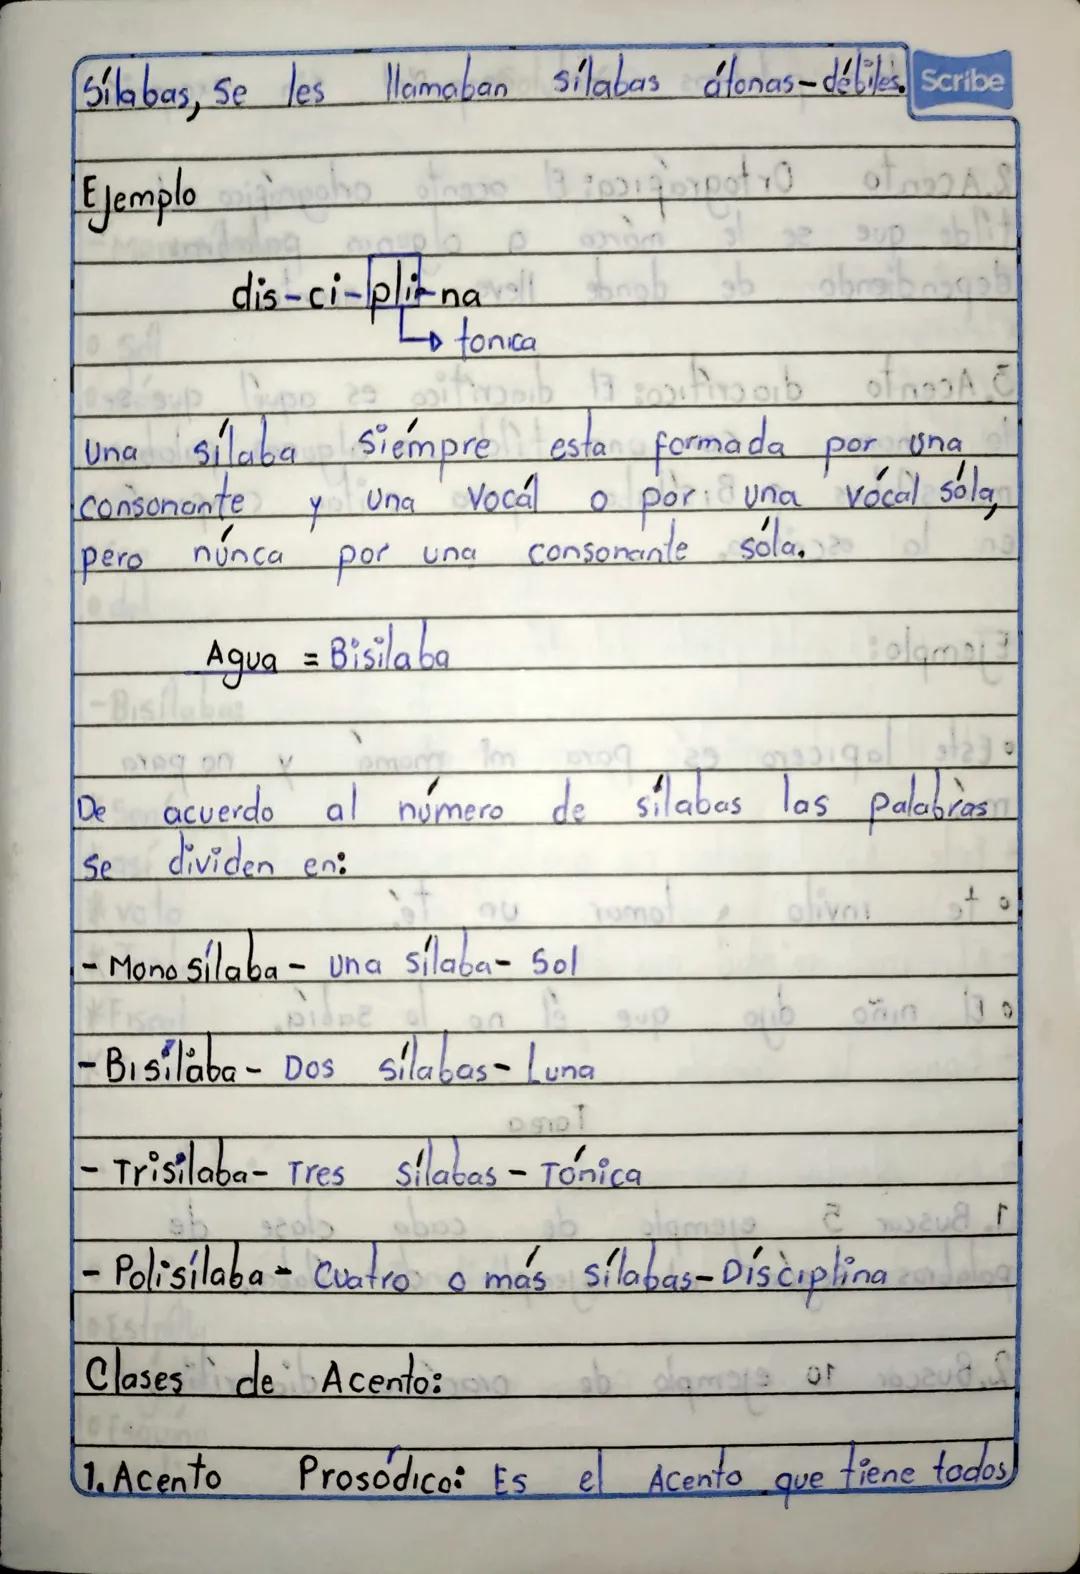 Sílabas, se les llamaban sílabas átonas-débiles. Scribe
Ejemplo
dis-ci-pli-na
tonica
Una sílaba siémpre esta formada por una
consonante y una vocál o por una vócal sóla,
pero núnca por una consonante sóla.
Agua = Bisilaba
De acuerdo al número de sílabas las palabras
se dividen en:
- Mono sílaba - una sílaba - Sol
- Bisílaba - Dos sílabas - Luna
- Trisílaba - Tres sílabas - Tónica
- Polisílaba - Cuatro o más sílabas - Dísciplina
Clases de Acento:
1. Acento Prosódico: Es el Acento que tiene todos